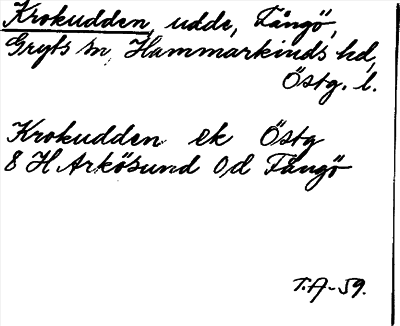 Krokudden, udde, Fångö,
Gryts sn, Hammarkinds hd,
Östg. l.
Krokudden ek Östg
8 H Arkösund Od Fångö
T.A-59.